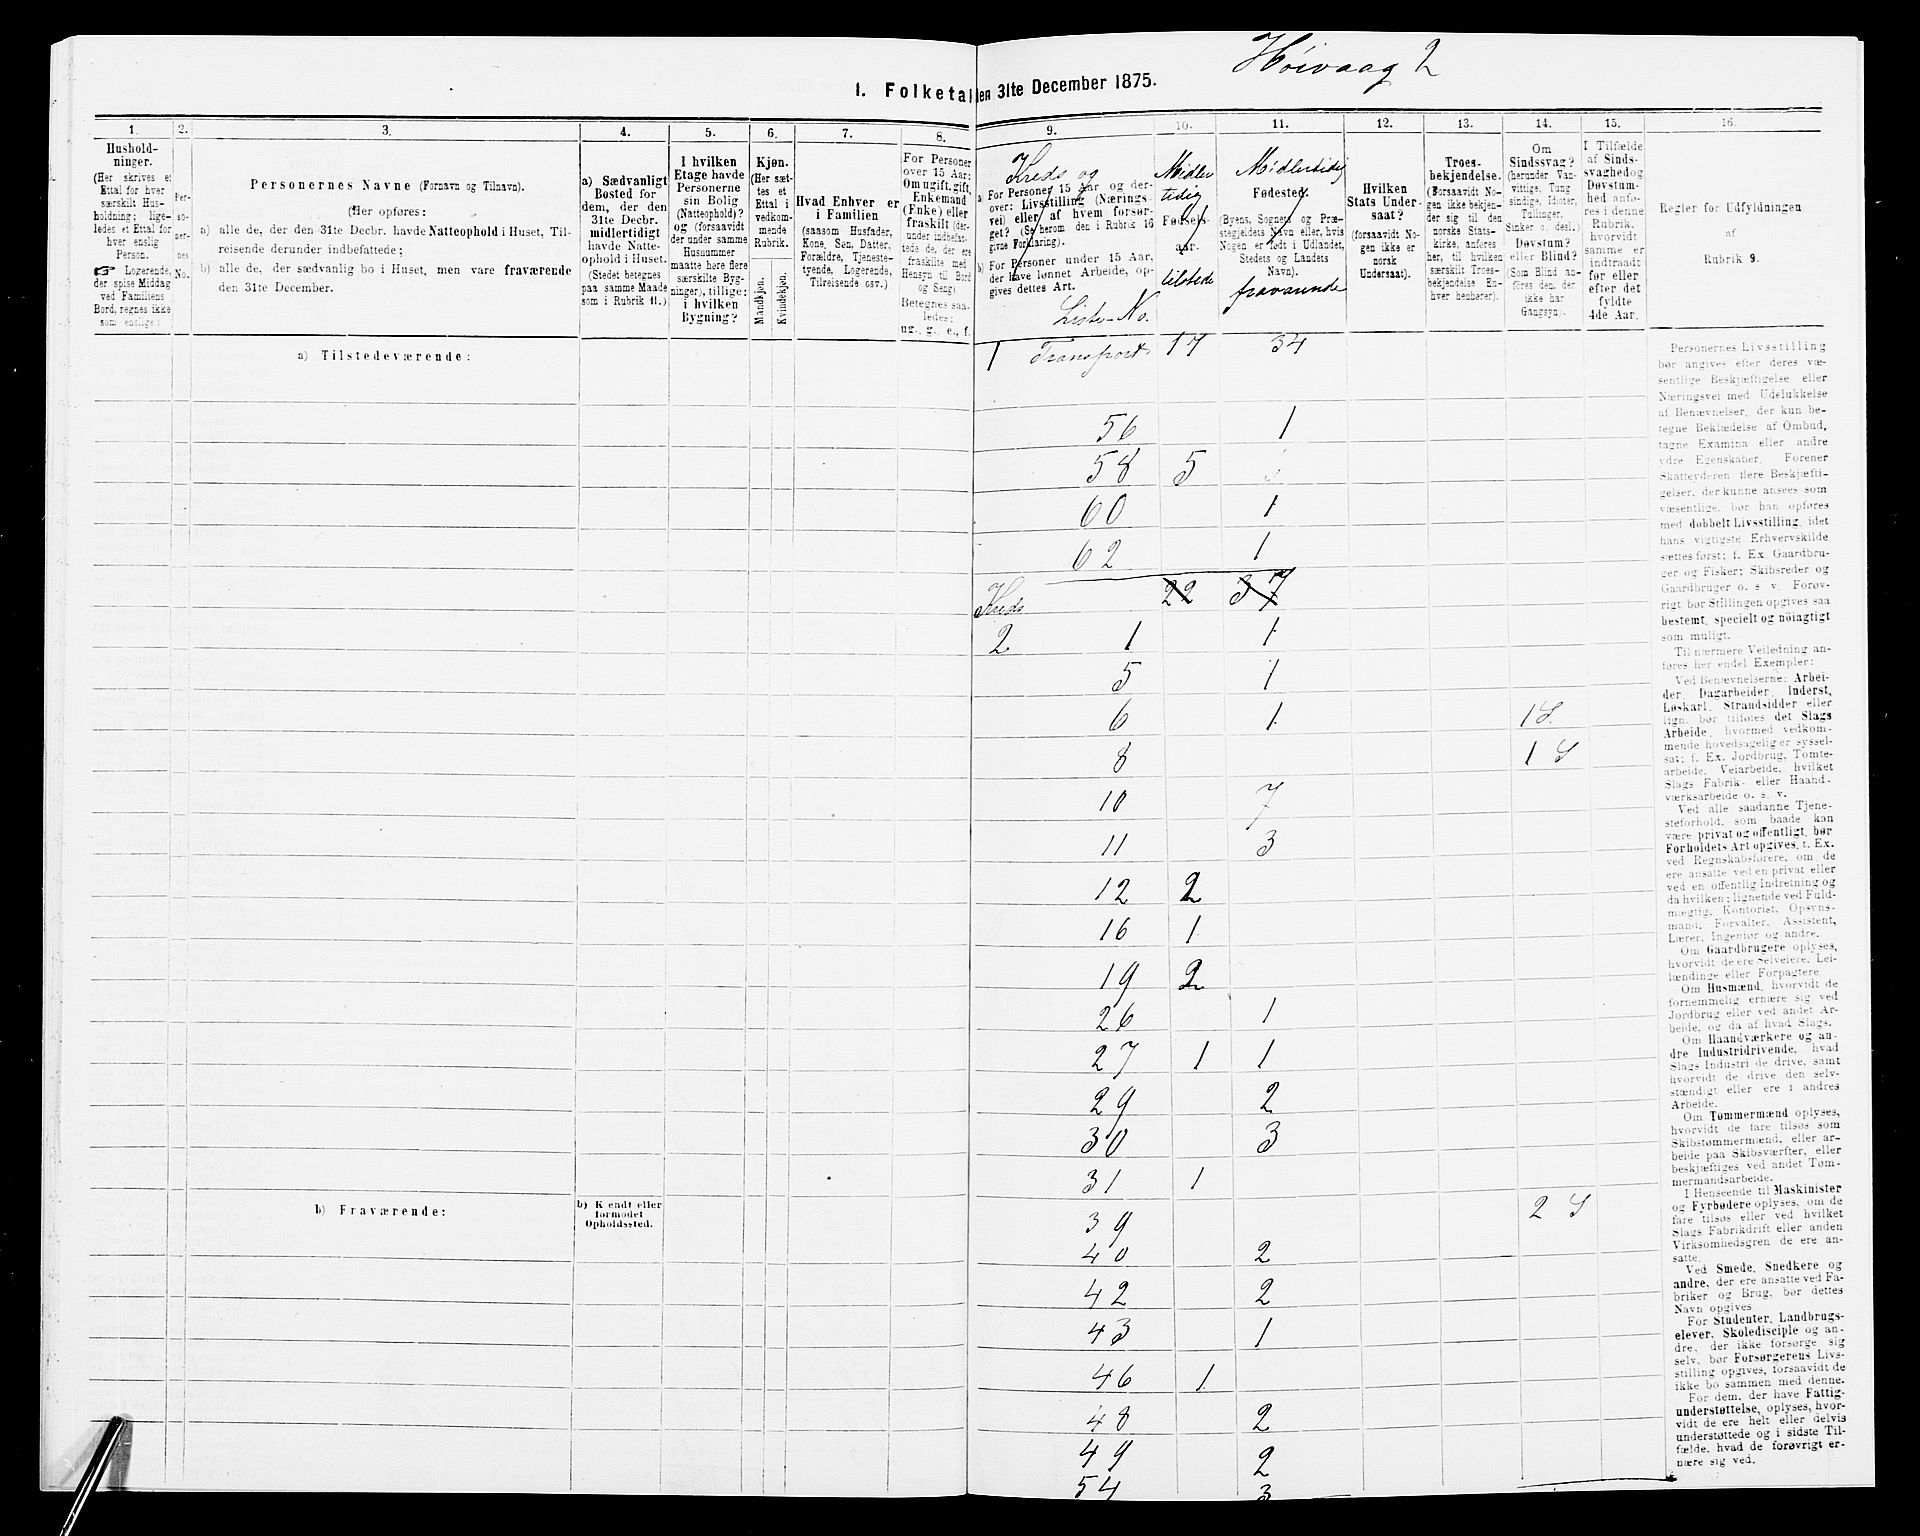 Høivaag 2
1. Folketal den 31te December 1875.
1. 2. 3. 4. 5. 6. 7. 8. 9. 10. 11. 12. 13. 14. 15. 16.
Hushold-
ninger.
(Her skrives et
Ettal for hver
særskilt Hus-
holdning; lige-
ledes et Ettal for
hver enslig
Person.
☞ Logerende,
der spise Middag
ved Familiens
Bord, regnes ikke
som enslige.)
Per-
so-
ner-
nes
No.
Personernes Navne (Fornavn og Tilnavn).
(Her opføres:
a) alle de, der den 31te Decbr. havde Natteophold i Huset, Til-
reisende derunder indbefattede;
b) alle de, der sædvanlig bo i Huset, men vare fraværende
den 31te December.)
a) Sædvanligt
Bosted for
dem, der den
31te Decbr.
midlertidigt
havde Natte-
ophold i Huset.
(Stedet betegnes
paa samme Maade
som i Rubrik 11.)
I hvilken
Etage havde
Personerne
sin Bolig
(Natteophold)?
og (forsaavidt
der under samme
Husnummer
maatte høre flere
særskilte Byg-
ninger), tillige:
i hvilken
Bygning?
Kjøn.
(Her sæt-
tes et
Ettal i
vedkom-
mende
Rubrik.
Mandkjøn.
Kvindekjøn.
Hvad Enhver er
i Familien
(saasom Husfader,
Kone, Søn, Datter,
Forældre, Tjeneste-
tyende, Logerende,
Tilreisende osv.)
For Personer
over 15 Aar:
Om ugift, gift,
Enkemand
(Enke) eller
fraskilt (der-
under indbefat-
tede de, der ere
fraskilte med
Hensyn til Bord
og Seng).
Betegnes saa-
ledes:
ug., g., e., f.
Kreds og
a For Personer 15 Aar og der-
over: Livsstilling (Nærings-
vei) eller af hvem forsør-
get? (Se herom den i Rubrik 16
givne Forklaring).
b) For Personer under 15 Aar,
der have lønnet Arbeide, op-
gives dettes Art.
Liste-No.
Midler
tidig
Fødsels-
aar.
tilstede
Midlertidig
Fødested.
(Byens, Sognets og Præ-
stegjeldets Navn eller, hvis
Nogen er født i Udlandet,
Stedets og Landets
Navn).
fraværende
Hvilken
Stats Under-
saat?
(forsaavidt No-
gen ikke er
norsk
Undersaat).
Troes-
bekjendelse.
(Forsaavidt No-
gen ikke bekjen-
der sig til den
norske Stats-
kirke, anføres
her, til hvilken
særskilt Troes-
bekjendelse En-
hver henhører).
Om
Sindssvag?
(herunder Van-
vittige, Tung
sindige, Idioter,
Tullinger,
Sinker o. desl.)
Døvstum?
eller Blind?
(Som Blind an-
føres den, der
ikke har
Gangsyn).
I Tilfælde
af Sinds-
svaghed og
Døvstum-
hed anfø-
res i denne
Rubrik,
hvorvidt
samme er
indtraadt
før eller
efter det
fyldte
4de Aar.
Regler for Udfyldningen
af
Rubrik 9.
a) Tilstedeværende:
1 Transport 17 34
56 1
58 5
60 1
62 1
Kreds 22 37
2 1 1
5 1
6 1 1 S.
8 1 S
10 7
11 3
12 2
16 1
19 2
26 1
27 1 1
29 2
30 3
31 1
b) Fraværende:
b) Kjendt eller
formodet
Opholdssted.
39 2 S
40 2
42 2
43 1
46 1
48 2
49 2
54 3
Personernes Livsstilling
bør angives efter deres væ-
sentlige Beskjæftigelse eller
Næringsvei med Udelukkelse
af Benævnelser, der kun be-
tegne Beklædelse af Ombud,
tagne Examina eller andre
ydre Egenskaber. Forener
Skatteyderen flere Beskjæfti-
gelser, der kunne ansees som
væsentlige, bør han opføres
med dobbelt Livsstilling, idet
hans vigtigste Erhvervskilde
sættes først; f. Ex. Gaardbru-
ger og Fisker; Skibsreder og
Gaardbruger o. s. v. Forøv-
rigt bør Stillingen opgives saa
bestemt, specielt og nøiagtigt
som muligt.
Til nærmere Veiledning an-
føres her endel Exempler:
Ved Benævnelserne: Arbei-
der, Dagarbeider, Inderst,
Løskarl, Strandsidder eller
lign. bør tilføies det Slags
Arbeide, hvormed vedkom-
mende hovedsagelig er syssel-
sat; f. Ex. Jordbrug, Tomte-
arbeide, Veiarbeide, hvilket
Slags Fabrik- eller Haand-
værksarbeide o. s. v.
Ved alle saadanne Tjene-
steforhold, som baade kan
være privat og offentligt, bør
Forholdets Art opgives, f. Ex.
ved Regnskabsførere, om de
ere ansatte ved en privat eller
ved en offentlig Indretning og
da hvilken; lignende ved Fuld-
mægtig, Kontorist, Opsyns-
mand, Forvalter, Assistent,
Lærer, Ingeniør og andre.
Om Gaardbrugere oplyses,
hvorvidt de ere Selveiere, Lei-
lændinge eller Forpagtere
Om Husmænd, hvorvidt de
fornemmelig ernære sig ved
Jordbrug eller ved andet Ar-
beide, og da af hvad Slags.
Om Haandværkere og an-
dre Industridrivende, hvad
Slags Industri de drive, samt
hvorvidt de drive den selv-
stændigt eller ere i andres
Arbeide.
Om Tømmermænd oplyses,
hvorvidt de fare tilsøs som
Skibstømmermænd, eller ar-
beide paa Skibsværfter, eller
beskjæftiges ved andet Tøm-
mermandsarbeide.
I Henseende til Maskinister
og Fyrbødere oplyses, om de
fare tilsøs eller ved hvilket
Slags Fabrikdrift eller anden
Virksomhedsgren de ere an-
satte.
Ved Smede, Snedkere og
andre, der ere ansatte ved Fa-
briker og Brug, bør dettes
Navn opgives
For Studenter, Landbrugs-
elever, Skoledisciple og an-
dre, der ikke forsørge sig
selv, bør Forsørgerens Livs-
stilling opgives, forsaavidt de
ikke bo sammen med denne.
For dem, der have Fattig-
understøttelse, oplyses, hvor-
vidt de ere helt eller delvis
understøttede og i sidste Til-
fælde, hvad de forøvrigt er-
nære sig ved.